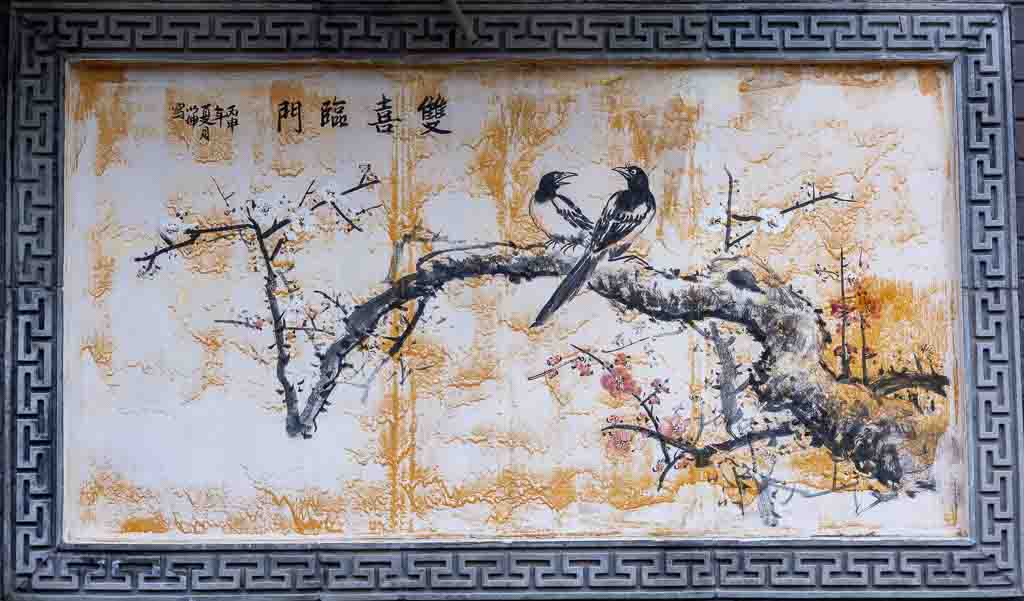 雙喜臨門
丙申
年夏月